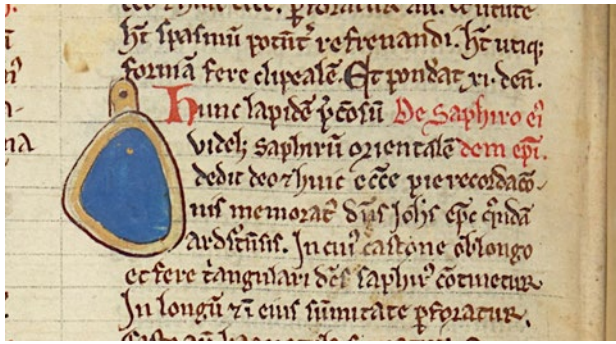 ht̄ spasmū potūt refrenandi. ht̄ utiq;
formā fere clipealē. Et pondat xi. den̄.
Hunc lapidē p̄cosū De Saphiro ei
videlꝫ saphirū orientalē dem epi.
dedit deo ⁊ huic ecc̄e pie recordacō-
nis memorat dn̄s Joh̄s ep̄c q̄ndā
ardfūsis. In cui castone oblongo
et fere triangulari dc̄s saphir cōtinetur
In longū ⁊ ī eius sūmitate pforatur.